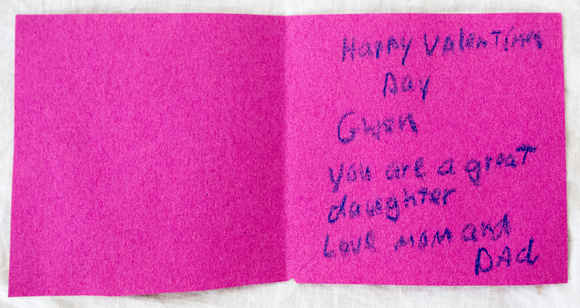 Happy Valentines
Day
Gwen
you are a great
daughter
Love mom and
DAd